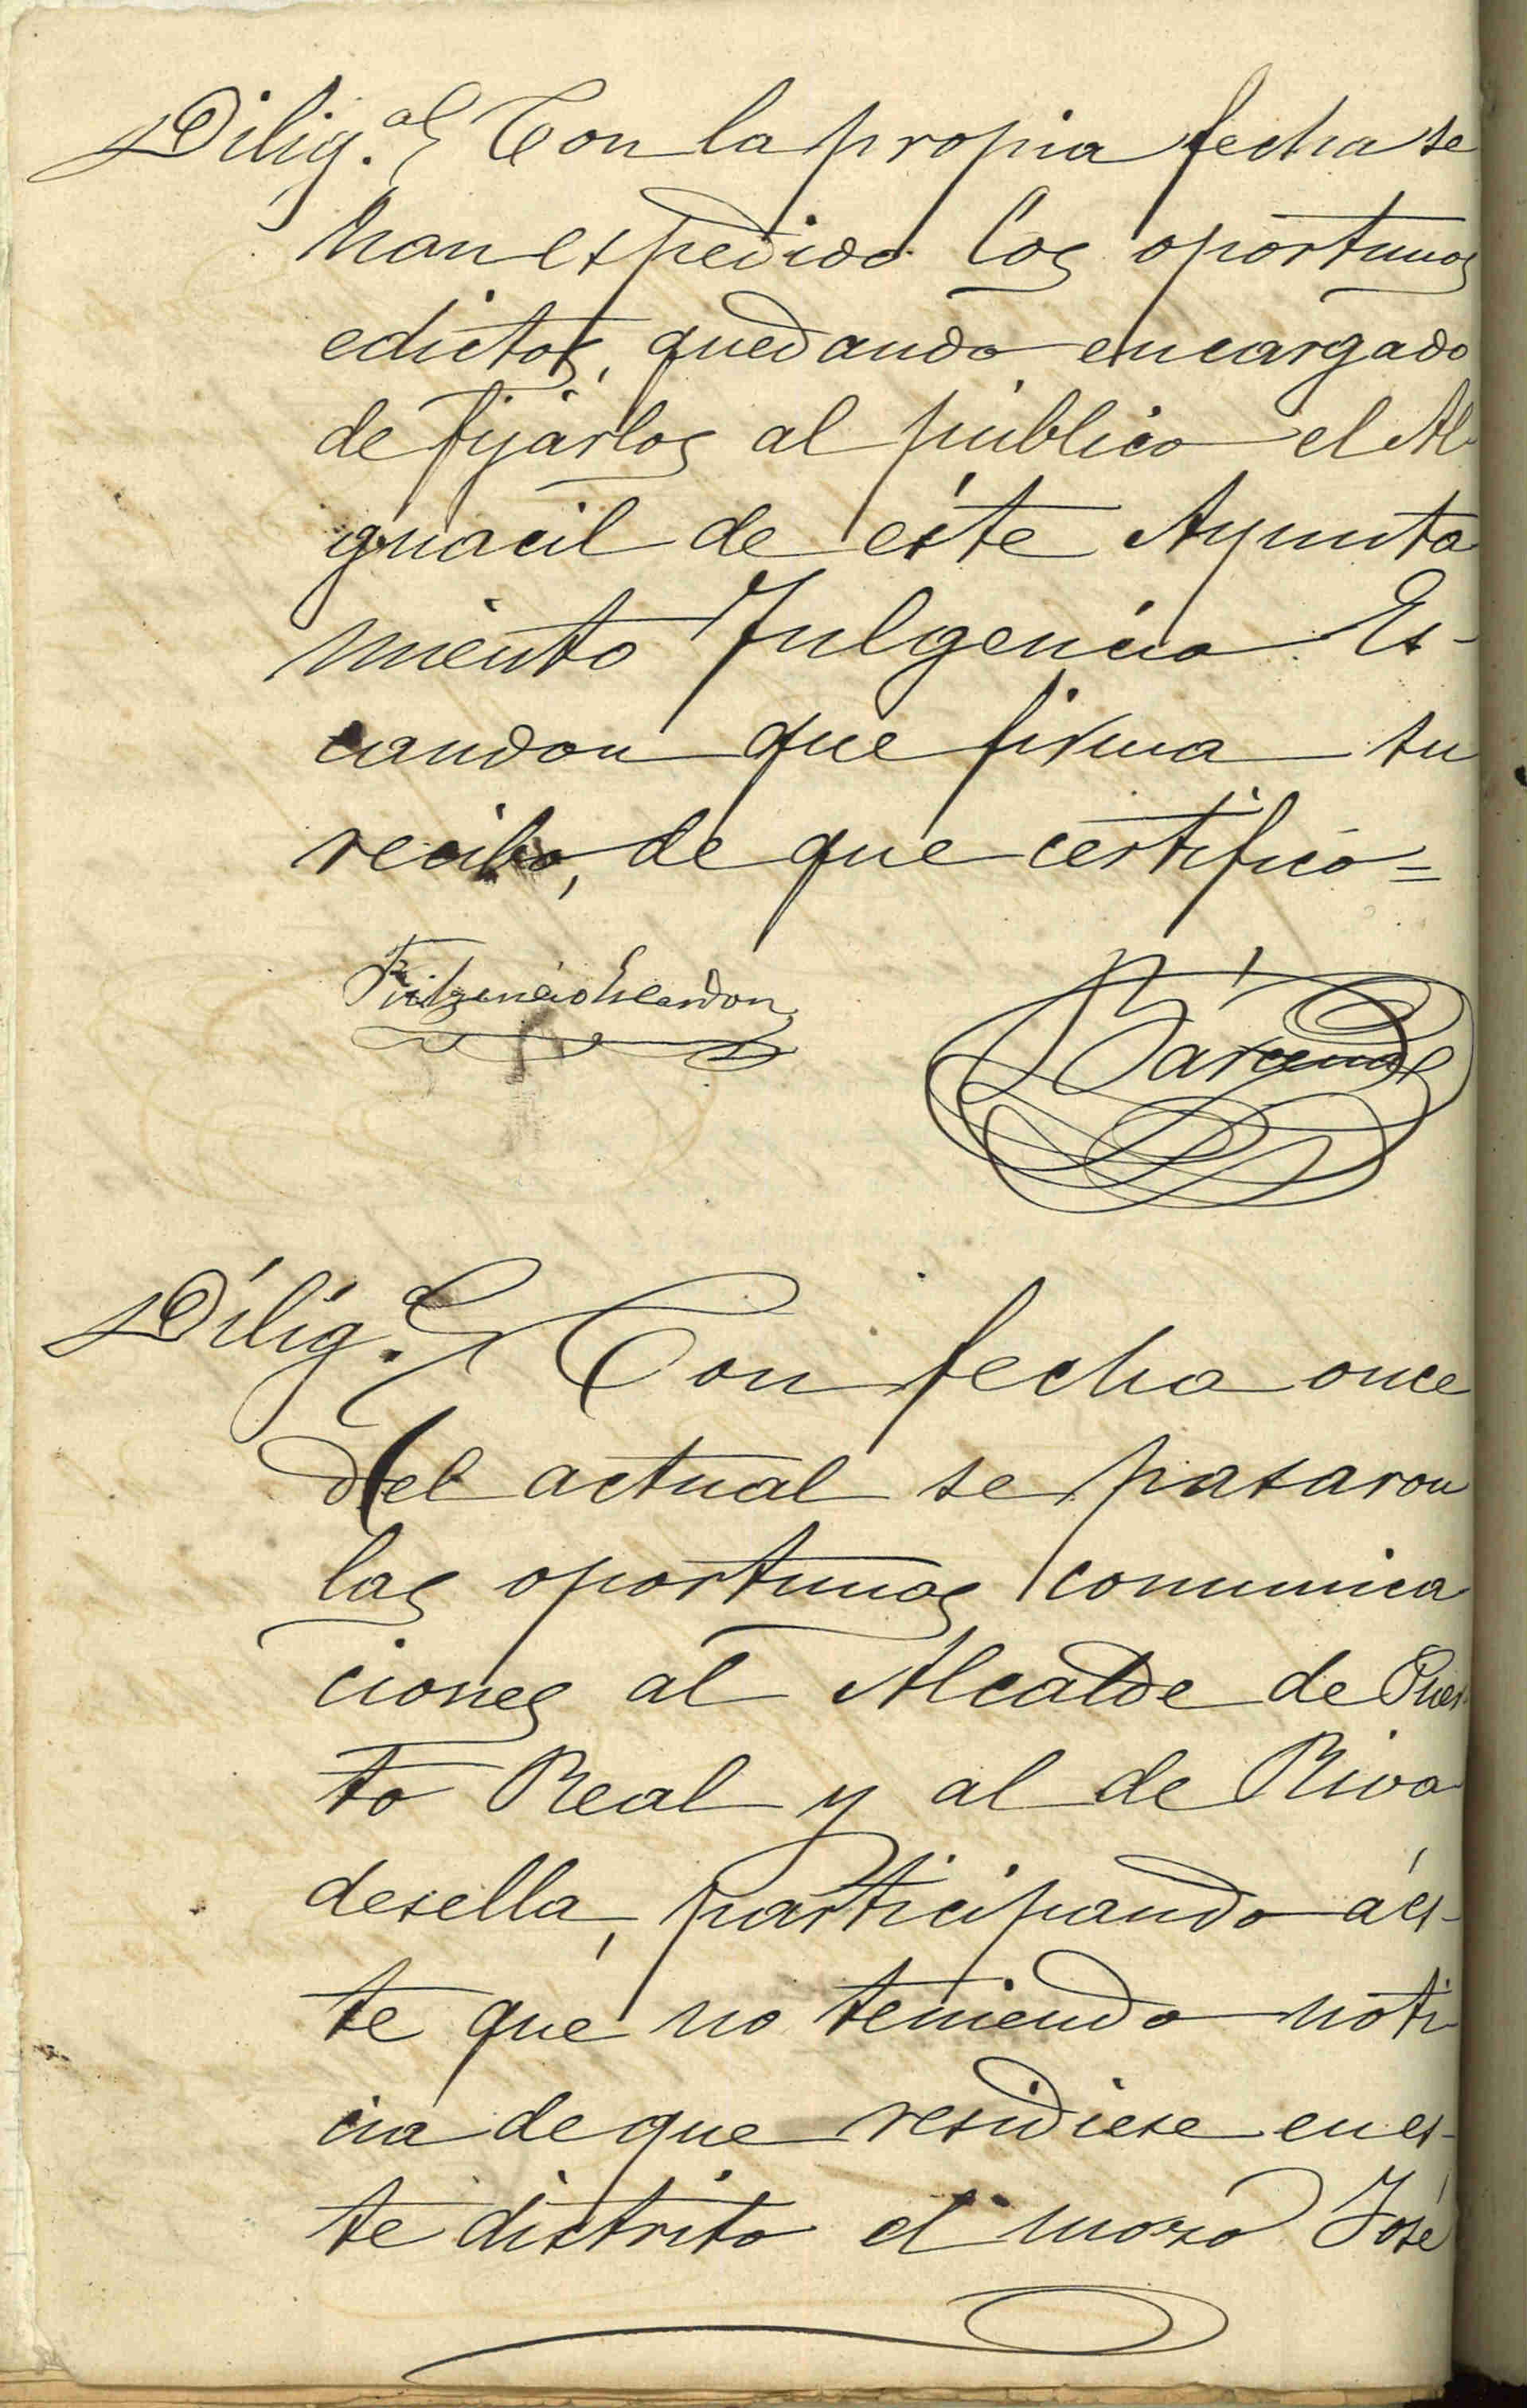 Dilig.ª Con la propia fecha se
han espedido los oportunos
edictos, quedando encargado
de fijarlos al público el Al-
guacil de éste Ayunta
miento Fulgencio Es-
candon que firma su
recibo, de que certifico=
Fulgencio Escandon
Bárcena
Dilig.ª Con fecha once
del actual se pasaron
las oportunas comunica
ciones al Alcalde de Puer
to Real y al de Riva
desella, participando á es-
te que no teniendo noti
cia de que residiese en es-
te distrito el mozo José